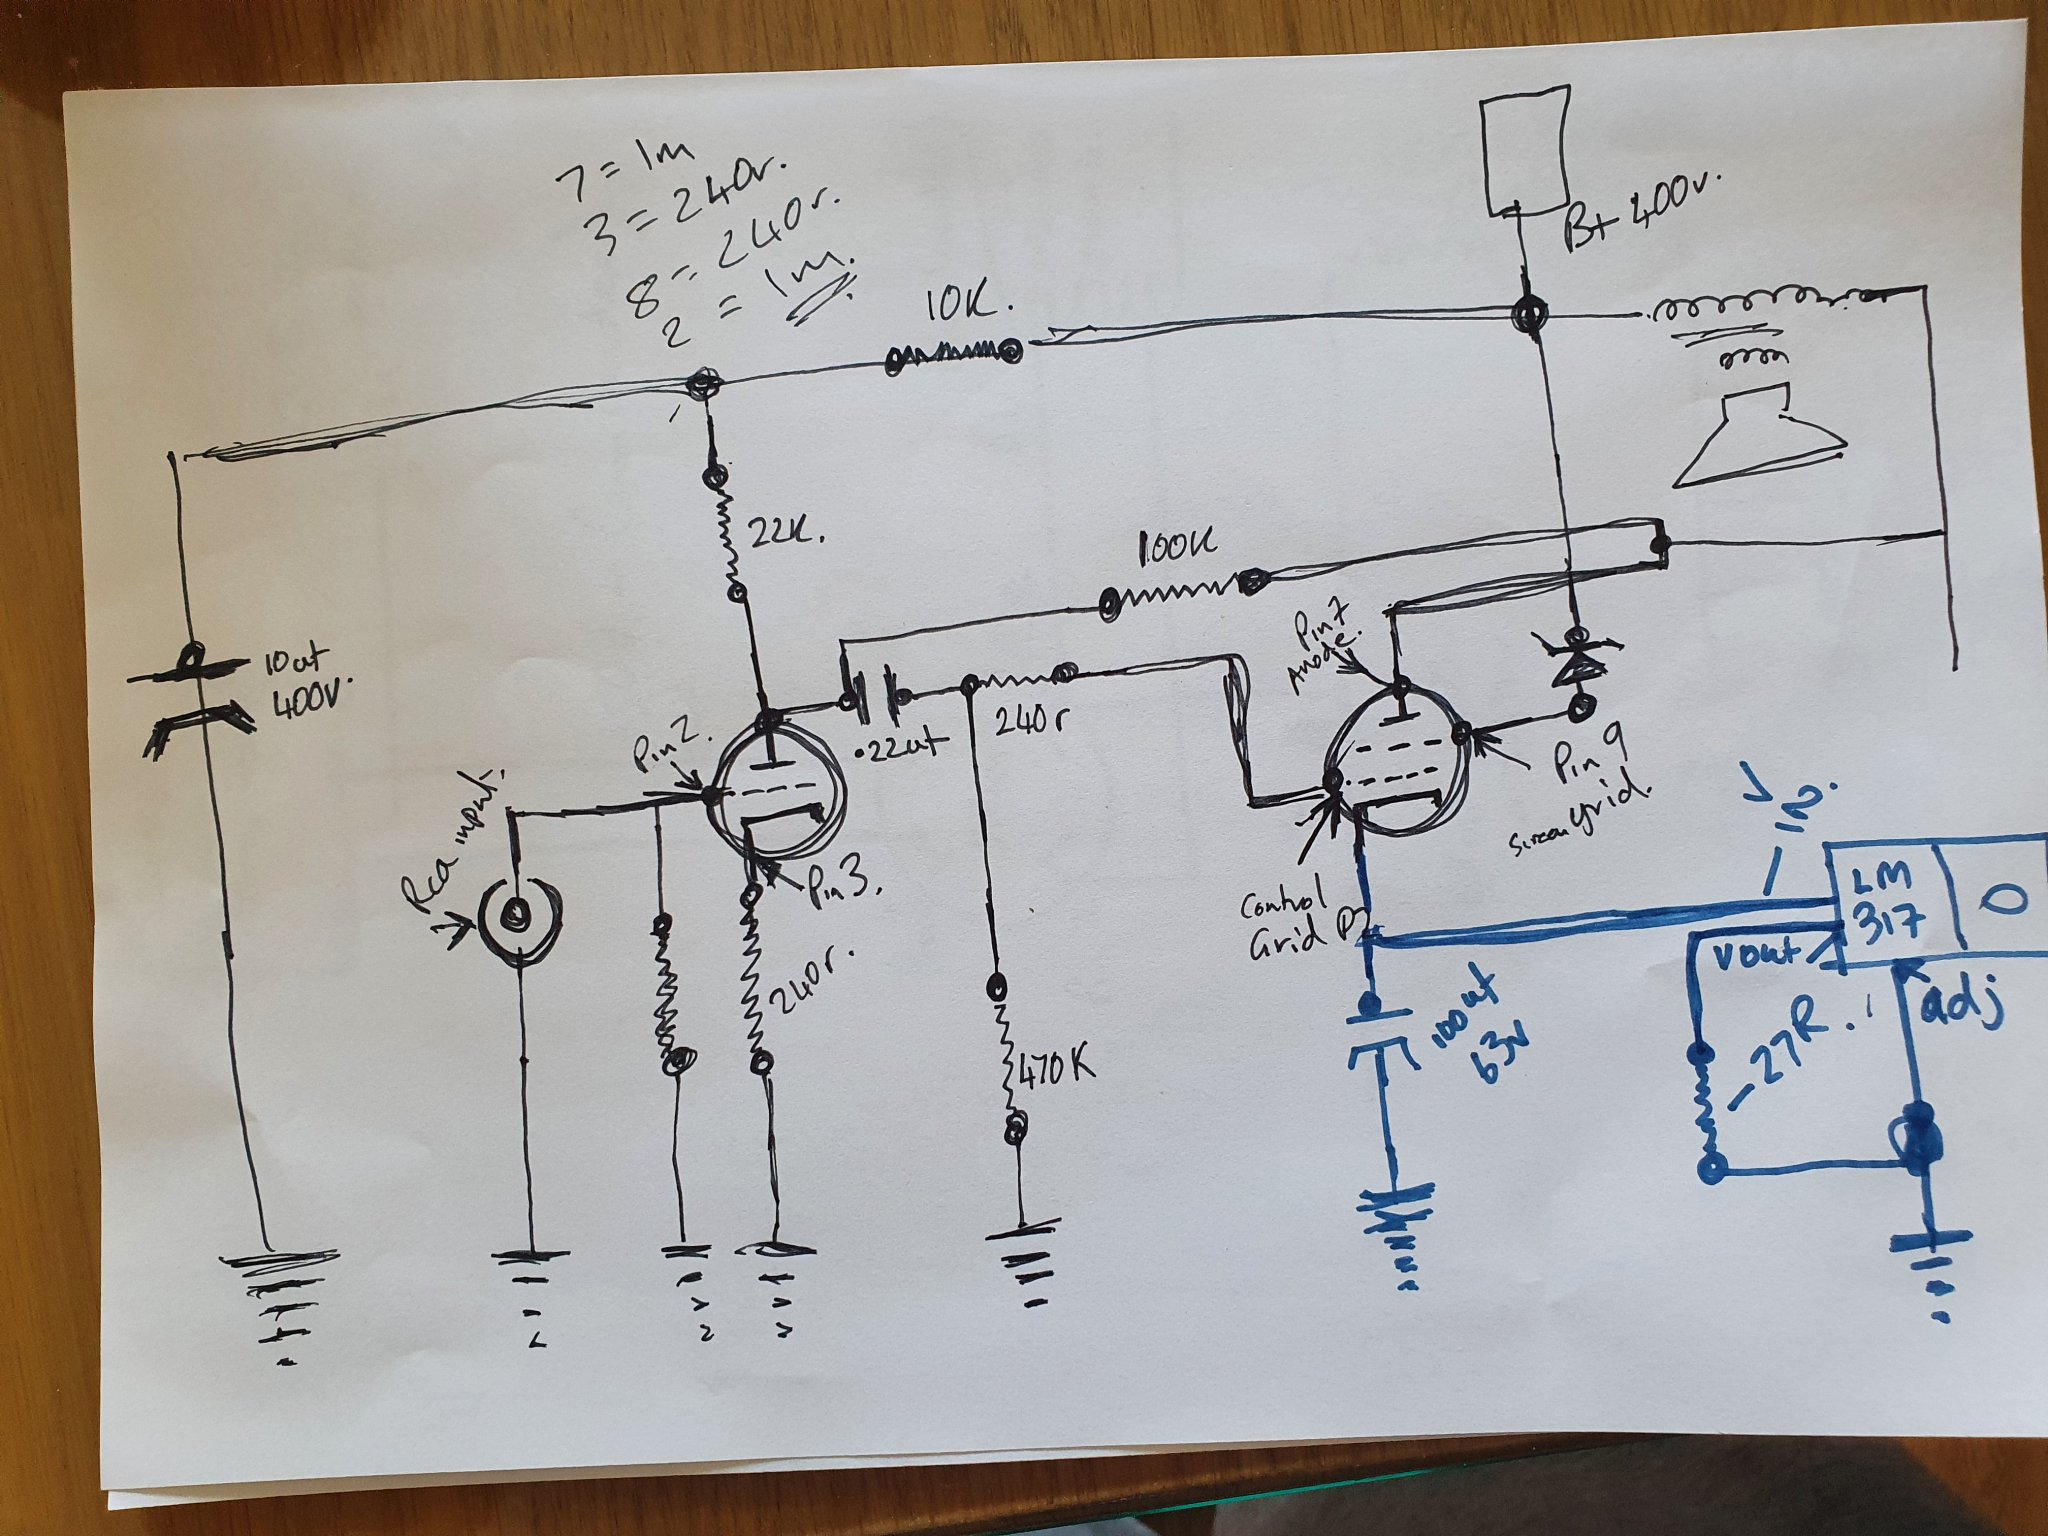 7 = 1m
3 = 240r.
8 = 240r.
2 = 1m.
10K.
B+ 400v.
22K.
100K
10ut
400V.
Pin 7
Anode.
Pin 2.
.22ut
240r
Rca input.
Pin 3.
Pin 9
Screen grid.
V in.
LM
317
O
Control
Grid
240r.
Vout
adj
100ut
63V
27R.
470K